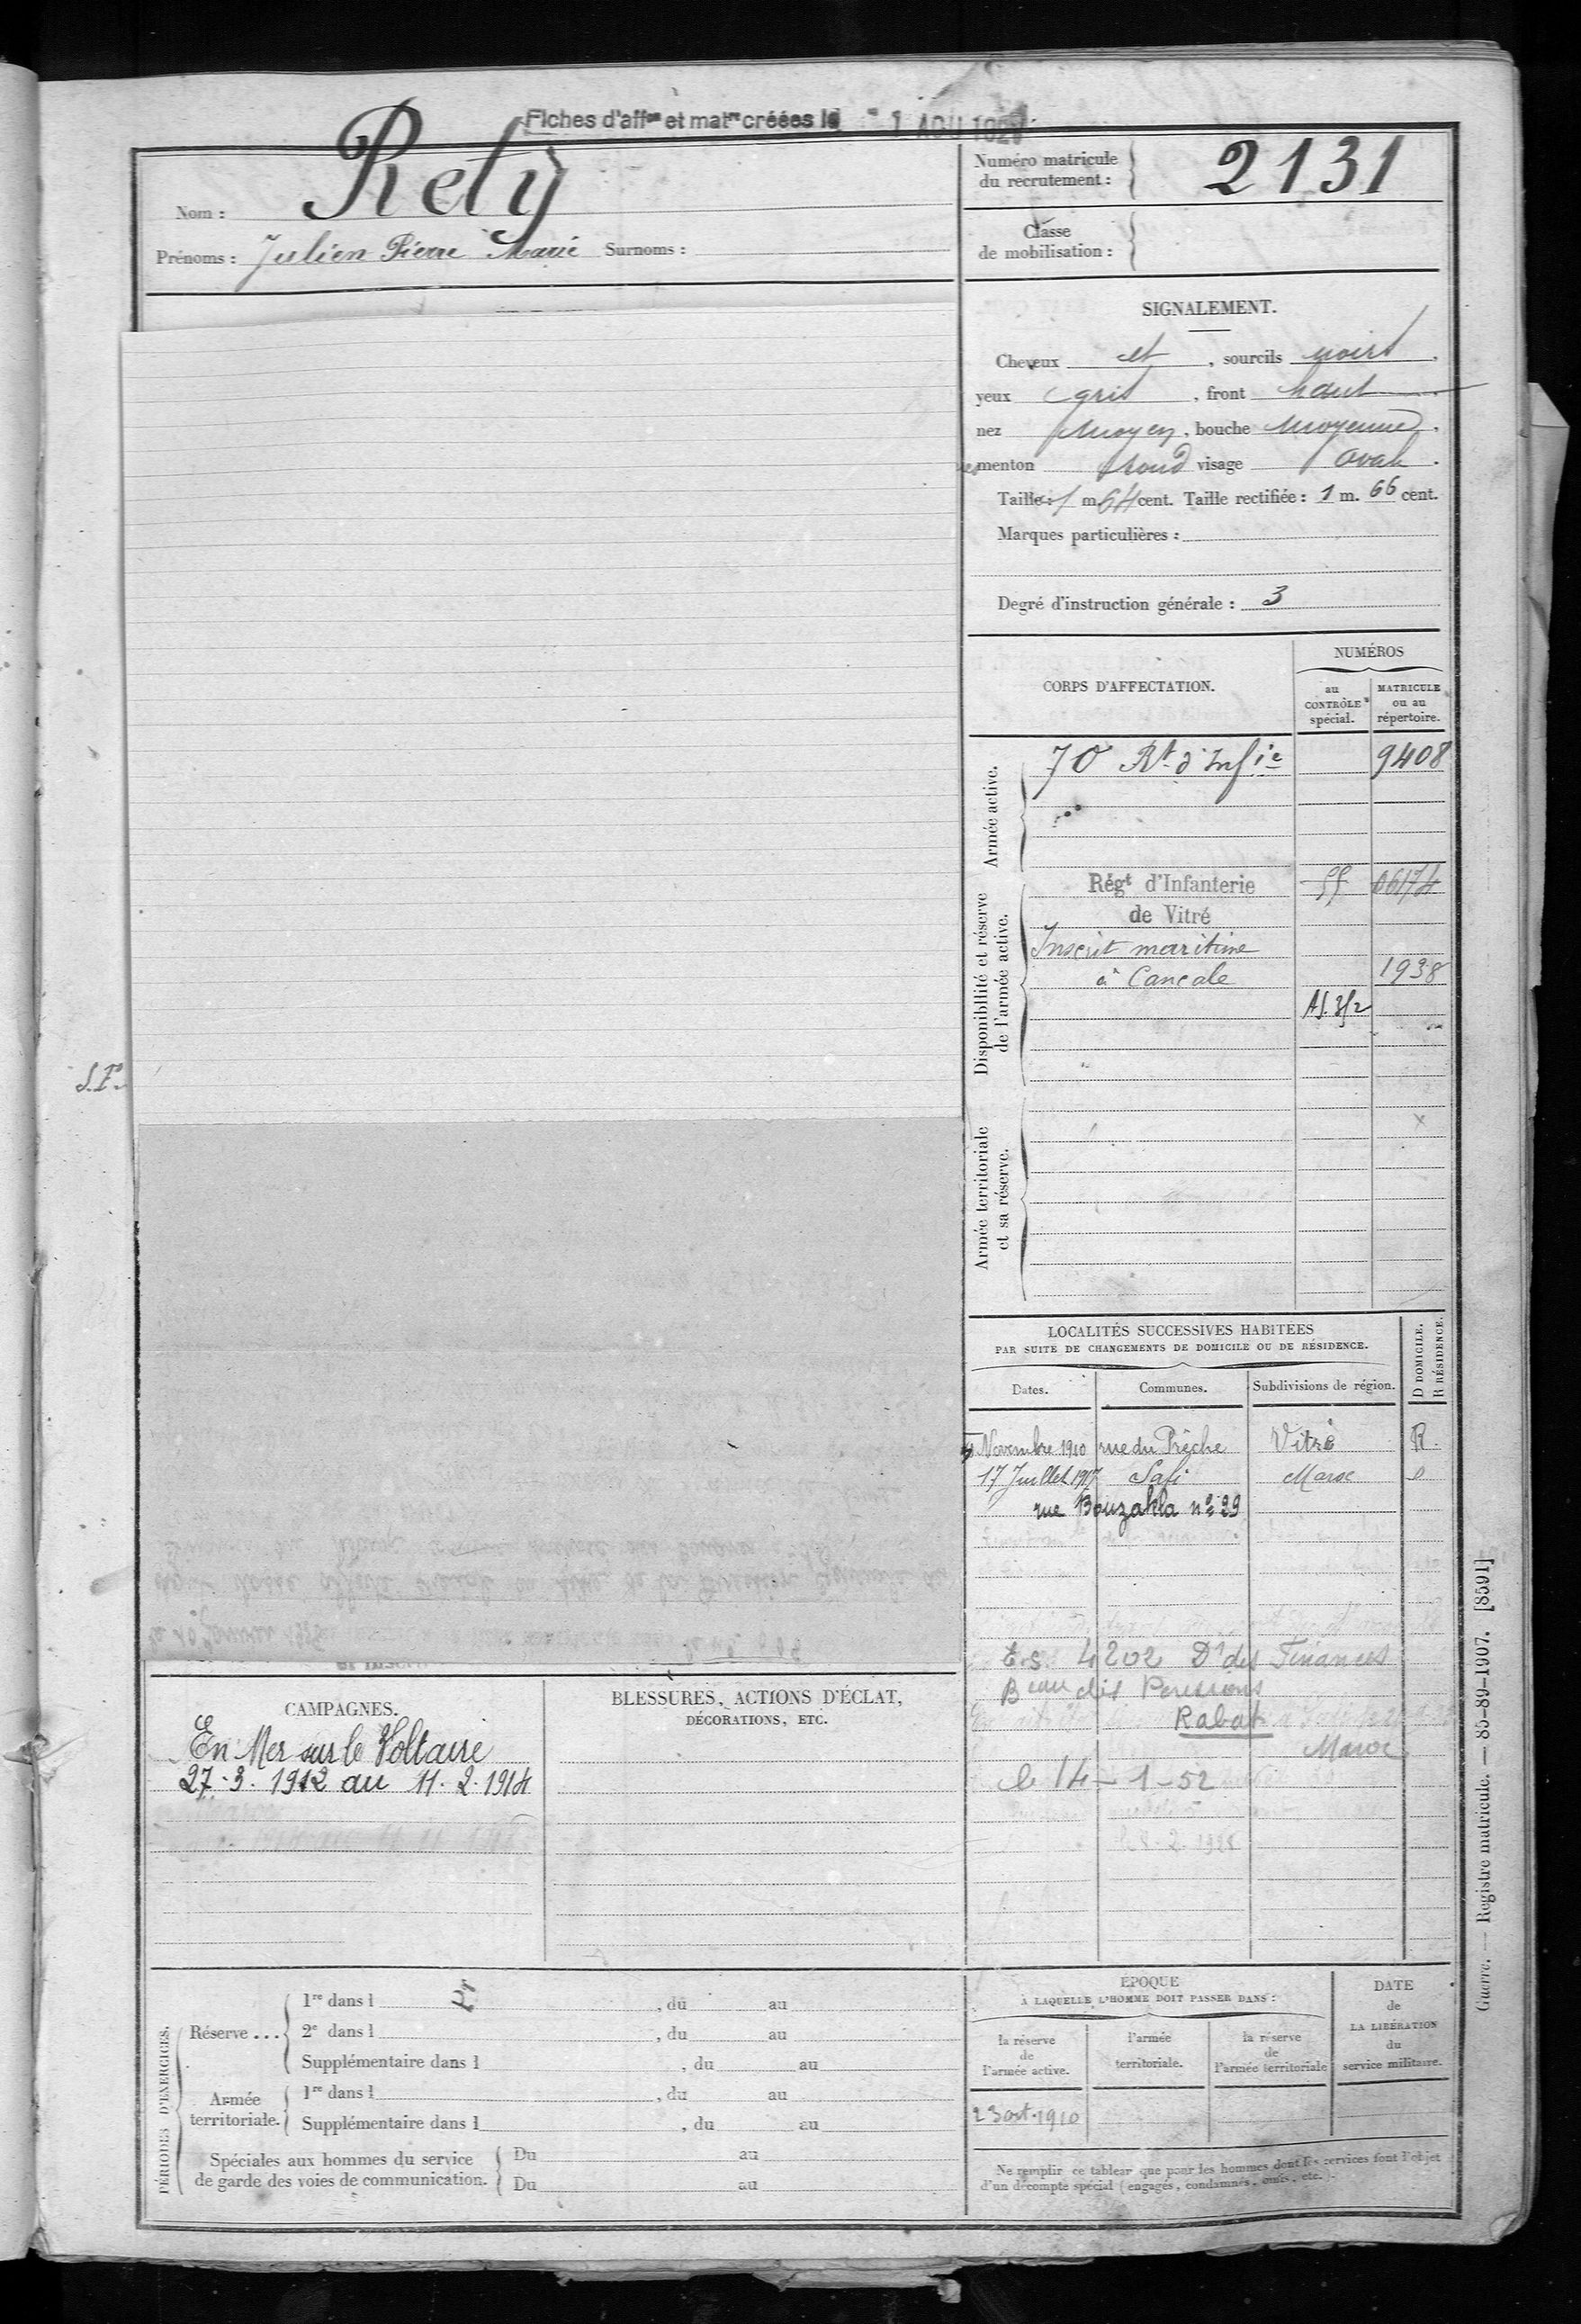 Fiches d'affon et matre créées le 1 AOU
Nom : Rety
Prénoms : Julien Pierre Marie Surnoms :
Numéro matricule
du recrutement : 2131
Classe
de mobilisation :
SIGNALEMENT.
Cheveux et , sourcils noirs
yeux gris , front haut
nez moyen , bouche moyenne
menton rond visage ovale
Taille : 1 m. 64 cent. Taille rectifiée : 1 m. 66 cent.
Marques particulières :
Degré d'instruction générale : 3
CORPS D'AFFECTATION.
NUMÉROS
au CONTRÔLE spécial.
MATRICULE ou au répertoire.
Armée active.
70 Rt d'Infie 9408
Disponibilité et réserve de l'armée active.
Régt d'Infanterie 06174
de Vitré
Inscrit maritime
à Cancale 1938
Armée territoriale et sa réserve.
S.P.
LOCALITÉS SUCCESSIVES HABITÉES
PAR SUITE DE CHANGEMENTS DE DOMICILE OU DE RÉSIDENCE.
D DOMICILE.
R RÉSIDENCE.
Dates. Communes. Subdivisions de région.
Novembre 1910 rue du Prêche Vitré R.
17 Juillet 1917 Safi Maroc
rue Bouzahla n° 29
4202 Dn des Finances
Beau des Pensions
Rabat
Maroc
le 14-1-52
CAMPAGNES.
En Mer sur le Voltaire
27.3.1912 au 11.2.1914
BLESSURES, ACTIONS D'ÉCLAT,
DÉCORATIONS, ETC.
PÉRIODES D'EXERCICES.
Réserve ...
1re dans l , du au
2e dans l , du au
Supplémentaire dans l , du au
Armée territoriale.
1re dans l , du au
Supplémentaire dans l , du au
Spéciales aux hommes du service
de garde des voies de communication.
Du au
Du au
ÉPOQUE
À LAQUELLE L'HOMME DOIT PASSER DANS :
la réserve de l'armée active.
l'armée territoriale.
la réserve de l'armée territoriale
DATE de LA LIBÉRATION du service militaire.
23 oct. 1910
Ne remplir ce tableau que pour les hommes dont les services font l'objet
d'un décompte spécial (engagés, condamnés, omis, etc.).
Guerre. — Registre matricule. — 85-89-1907. [8591]